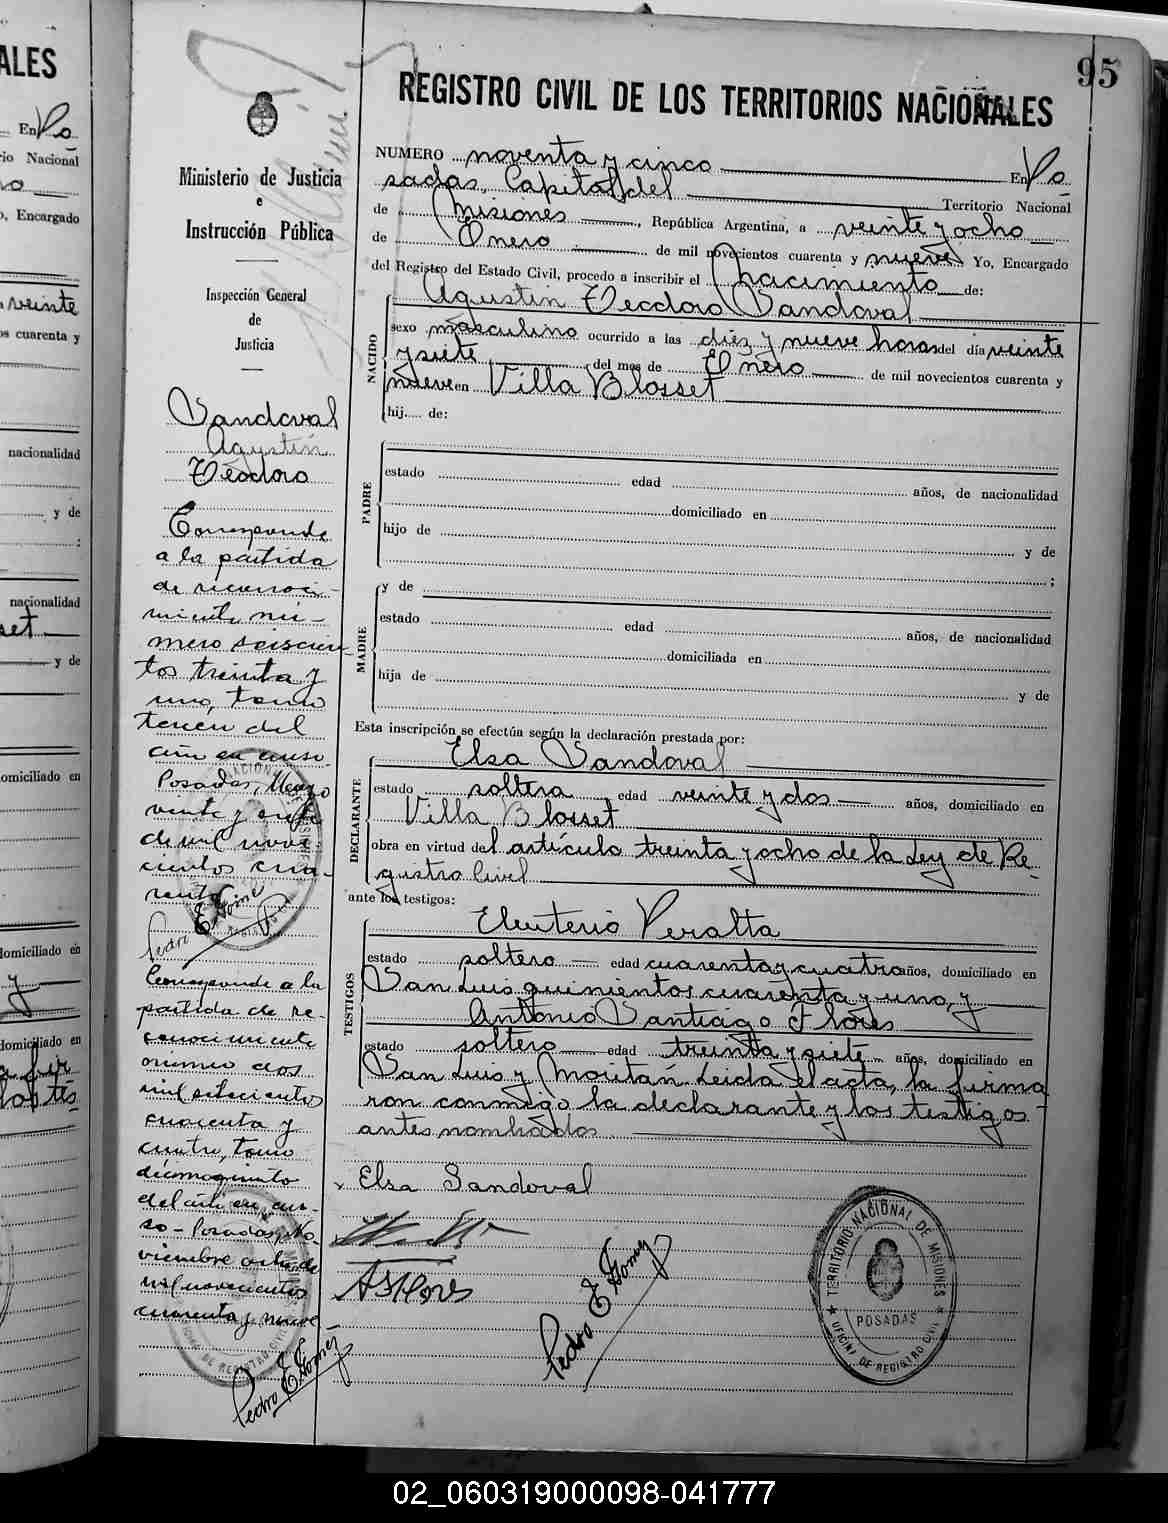 ALES
En Po
rio Nacional
o, Encargado
veinte
os cuarenta y
nacionalidad
y de
:
nacionalidad
set
y de
omiciliado en
domiciliado en
y
domiciliado en
a fir
los tes
95
REGISTRO CIVIL DE LOS TERRITORIOS NACIONALES
Ministerio de Justicia
e
Instrucción Pública
Inspección General
de
Justicia
Sandoval
Agustín
Teodoro
Corresponde
a la partida
de reconoci-
miento nú-
mero seiscien-
tos treinta y
uno, tomo
tercero del
año en curso.
Posadas, Marzo
veinte y ocho
de mil nove-
cientos cua-
renta
Pedro E Gomez
Corresponde a la
partida de re-
conocimiento
número dos
mil setecientos
cuarenta y
cuatro, tomo
décimoquinto
del año en cur-
so - Posadas, No-
viembre ocho de
mil novecientos
cuarenta y nueve
Pedro E Gomez
NUMERO noventa y cinco En Po
sadas, Capital del Territorio Nacional
de Misiones, República Argentina, a veinte y ocho
de Enero de mil novecientos cuarenta y nueve Yo, Encargado
del Registro del Estado Civil, procedo a inscribir el nacimiento de:
NACIDO
Agustín Teodoro Sandoval
sexo masculino ocurrido a las diez y nueve horas del día veinte
y siete del mes de Enero de mil novecientos cuarenta y
nueve en Villa Blosset
hij.... de:
PADRE
estado edad años, de nacionalidad
domiciliado en
hijo de y de
;
MADRE
y de
estado edad años, de nacionalidad
domiciliada en
hija de y de
Esta inscripción se efectúa según la declaración prestada por:
DECLARANTE
Elsa Sandoval
estado soltera edad veinte y dos años, domiciliado en
Villa Blosset
obra en virtud del artículo treinta y ocho de la Ley de Re-
gistro Civil
ante los testigos:
TESTIGOS
Eleuterio Peralta
estado soltero edad cuarenta y cuatro años, domiciliado en
San Luis quinientos cuarenta y uno, y
Antonio Santiago Flores
estado soltero edad treinta y siete años, domiciliado en
San Luis y Moritán. Leida el acta, la firma
ron conmigo la declarante y los testigos
antes nombrados.
Elsa Sandoval
ASFlores
Pedro E Gomez
TERRITORIO NACIONAL DE MISIONES
POSADAS
OFICINA DE REGISTRO CIVIL
02_060319000098-041777